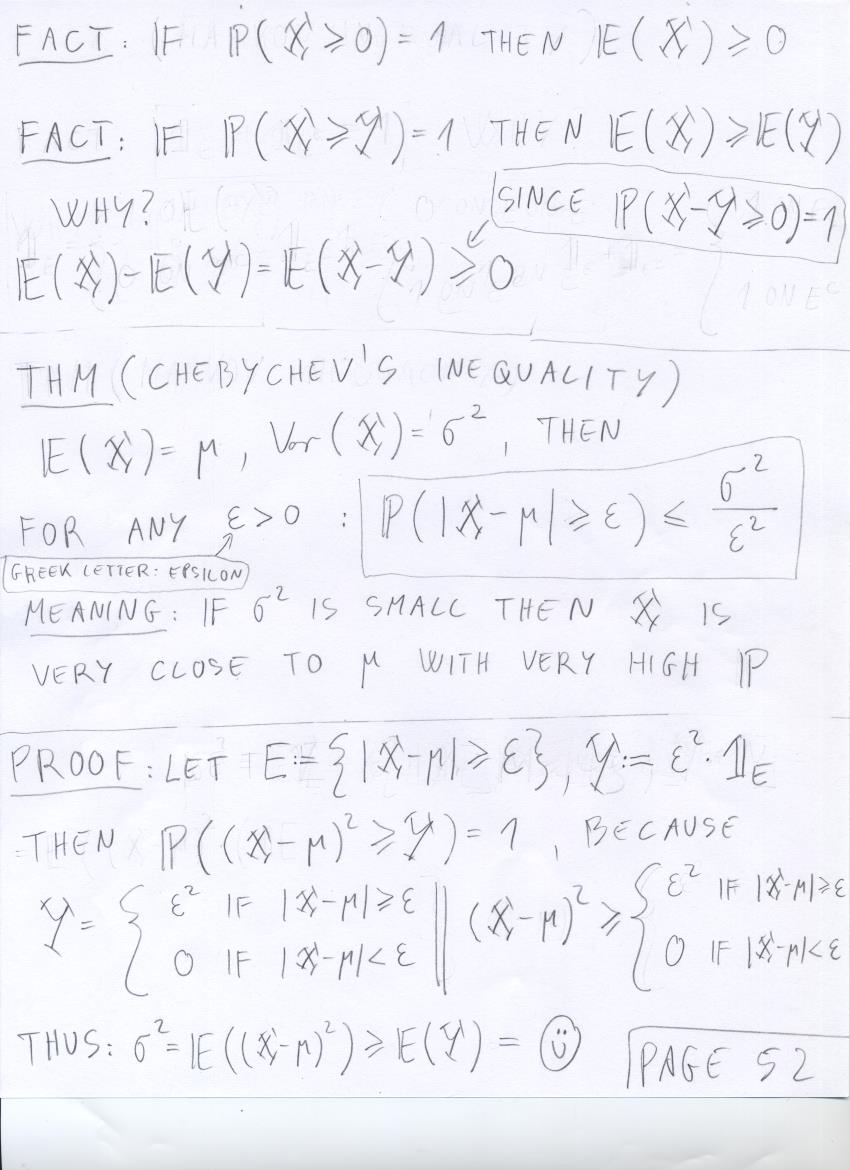 FACT: IF ℙ(X ≥ 0) = 1 THEN 𝔼(X) ≥ 0
FACT: IF ℙ(X ≥ Y) = 1 THEN 𝔼(X) ≥ 𝔼(Y)
WHY?
SINCE ℙ(X-Y ≥ 0) = 1
𝔼(X) - 𝔼(Y) = 𝔼(X-Y) ≥ 0
THM (CHEBYCHEV'S INEQUALITY)
𝔼(X) = μ, Var(X) = σ², THEN
FOR ANY ε > 0 : ℙ(|X-μ| ≥ ε) ≤ σ²/ε²
GREEK LETTER: EPSILON
MEANING: IF σ² IS SMALL THEN X IS
VERY CLOSE TO μ WITH VERY HIGH ℙ
PROOF: LET E := {|X-μ| ≥ ε}, Y := ε² · 𝟙_E
THEN ℙ((X-μ)² ≥ Y) = 1, BECAUSE
Y = { ε² IF |X-μ| ≥ ε || (X-μ)² ≥ { ε² IF |X-μ| ≥ ε
0 IF |X-μ| < ε || 0 IF |X-μ| < ε
THUS: σ² = 𝔼((X-μ)²) ≥ 𝔼(Y) = ☺
PAGE 52